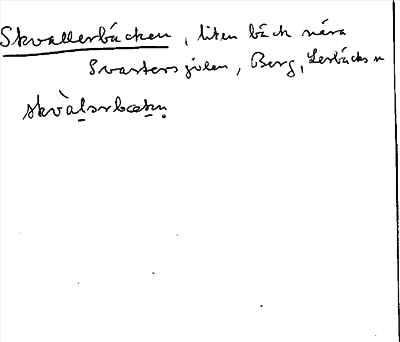 Skvallerbäcken, liten bäck nära
Svartersjölen, Berg, Lerbäcks n
skvàlsrbœkṇ